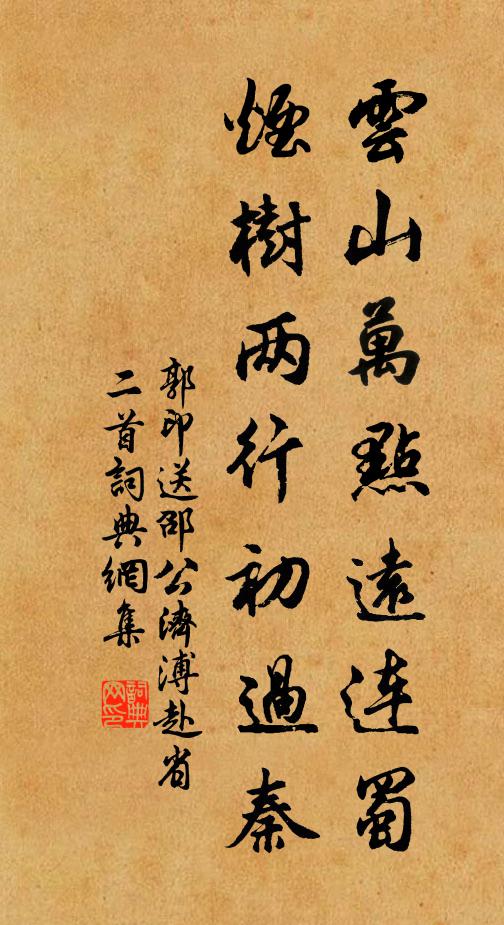 雲山萬點遠連蜀
煙樹两行初過秦
郭印送邵公濟溥赴省
二首詞典網集
詞典网印